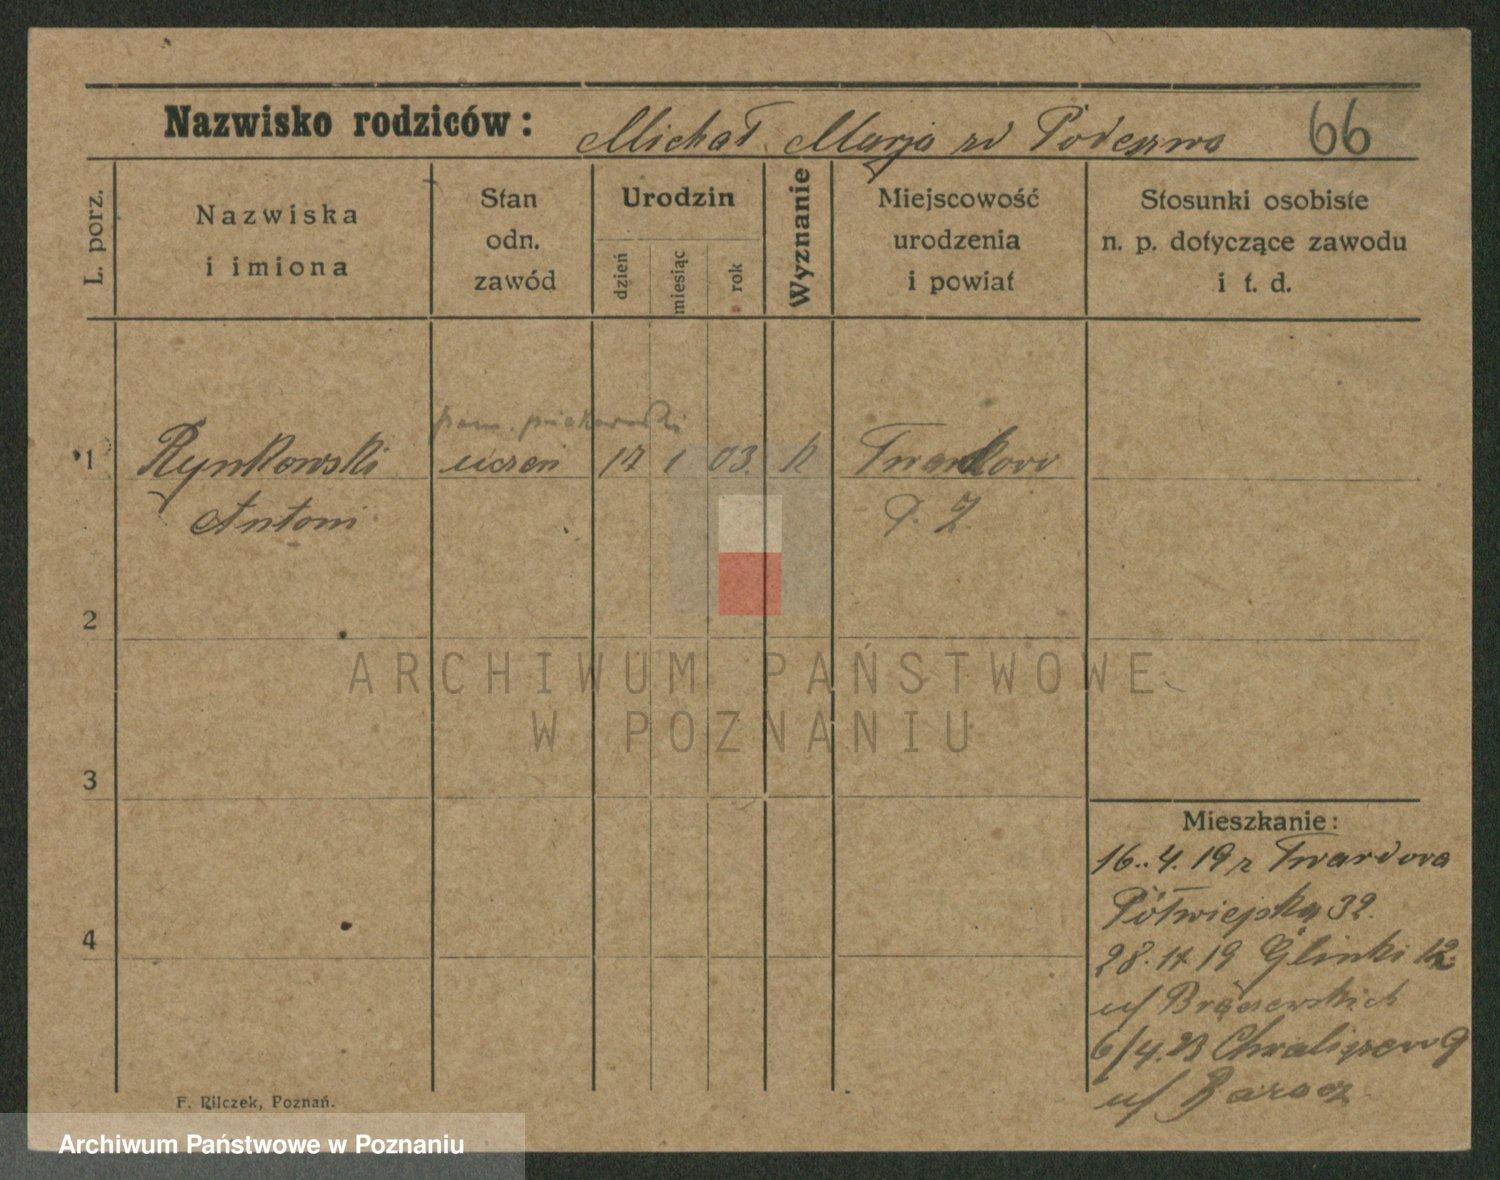 Nazwisko rodziców: Michał Marja zd Podeszwa 66
L. porz.
Nazwiska
i imiona
Stan
odn.
zawód
Urodzin
dzień
miesiąc
rok
Wyznanie
Miejscowość
urodzenia
i powiat
Stosunki osobiste
n. p. dotyczące zawodu
i t. d.
pom. piekarski
1 Rynkowski uczeń 17 1 03. k Twardowo
Antoni
2
ARCHIWUM PAŃSTWOWE
W POZNANIU
3
4
Mieszkanie:
16.. 4. 19 z Twardowa
Półwiejska 32.
28. 11 19 Glinki 12
u/
6/4.23 Chwaliszewo 9
u/
F. Pilczek, Poznań.
Archiwum Państwowe w Poznaniu